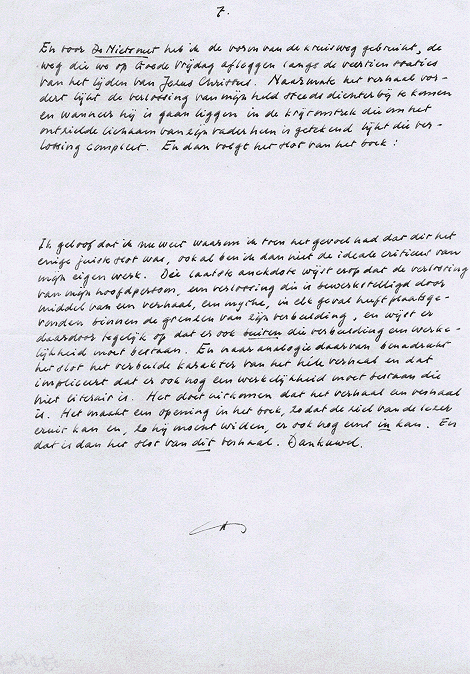 7.
En voor De Nietsnut heb ik de vorm van de kruisweg gebruikt, de
weg die we op Goede Vrijdag afleggen langs de veertien staties
van het lijden van Jezus Christus. Naarmate het verhaal vor-
dert lijkt de verlossing van mijn held steeds dichterbij te komen
en wanneer hij is gaan liggen in de krijtomtrek die om het
ontzielde lichaam van zijn vader heen is getekend lijkt die ver-
lossing compleet. En dan volgt het slot van het boek:
Ik geloof dat ik nu weet waarom ik toen het gevoel had dat dit het
enige juiste slot was, ook al ben ik dan niet de ideale criticus van
mijn eigen werk. Die laatste anekdote wijst erop dat de verlossing
van mijn hoofdpersoon, een verlossing die is bewerkstelligd door
middel van een verhaal, een mythe, in elk geval heeft plaatsge-
vonden binnen de grenzen van zijn verbeelding, en wijst er
daardoor tegelijk op dat er ook buiten die verbeelding een werke-
lijkheid moet bestaan. En naar analogie daarvan benadrukt
het slot het verbeelde karakter van het héle verhaal en dat
impliceert dat er ook nog een werkelijkheid moet bestaan die
niet literair is. Het doet uitkomen dat het verhaal een verhaal
is. Het maakt een opening in het boek, zodat de ziel van de lezer
eruit kan en, zo hij mocht willen, er ook nog eens in kan. En
dat is dan het slot van dit verhaal. Dankuwel.